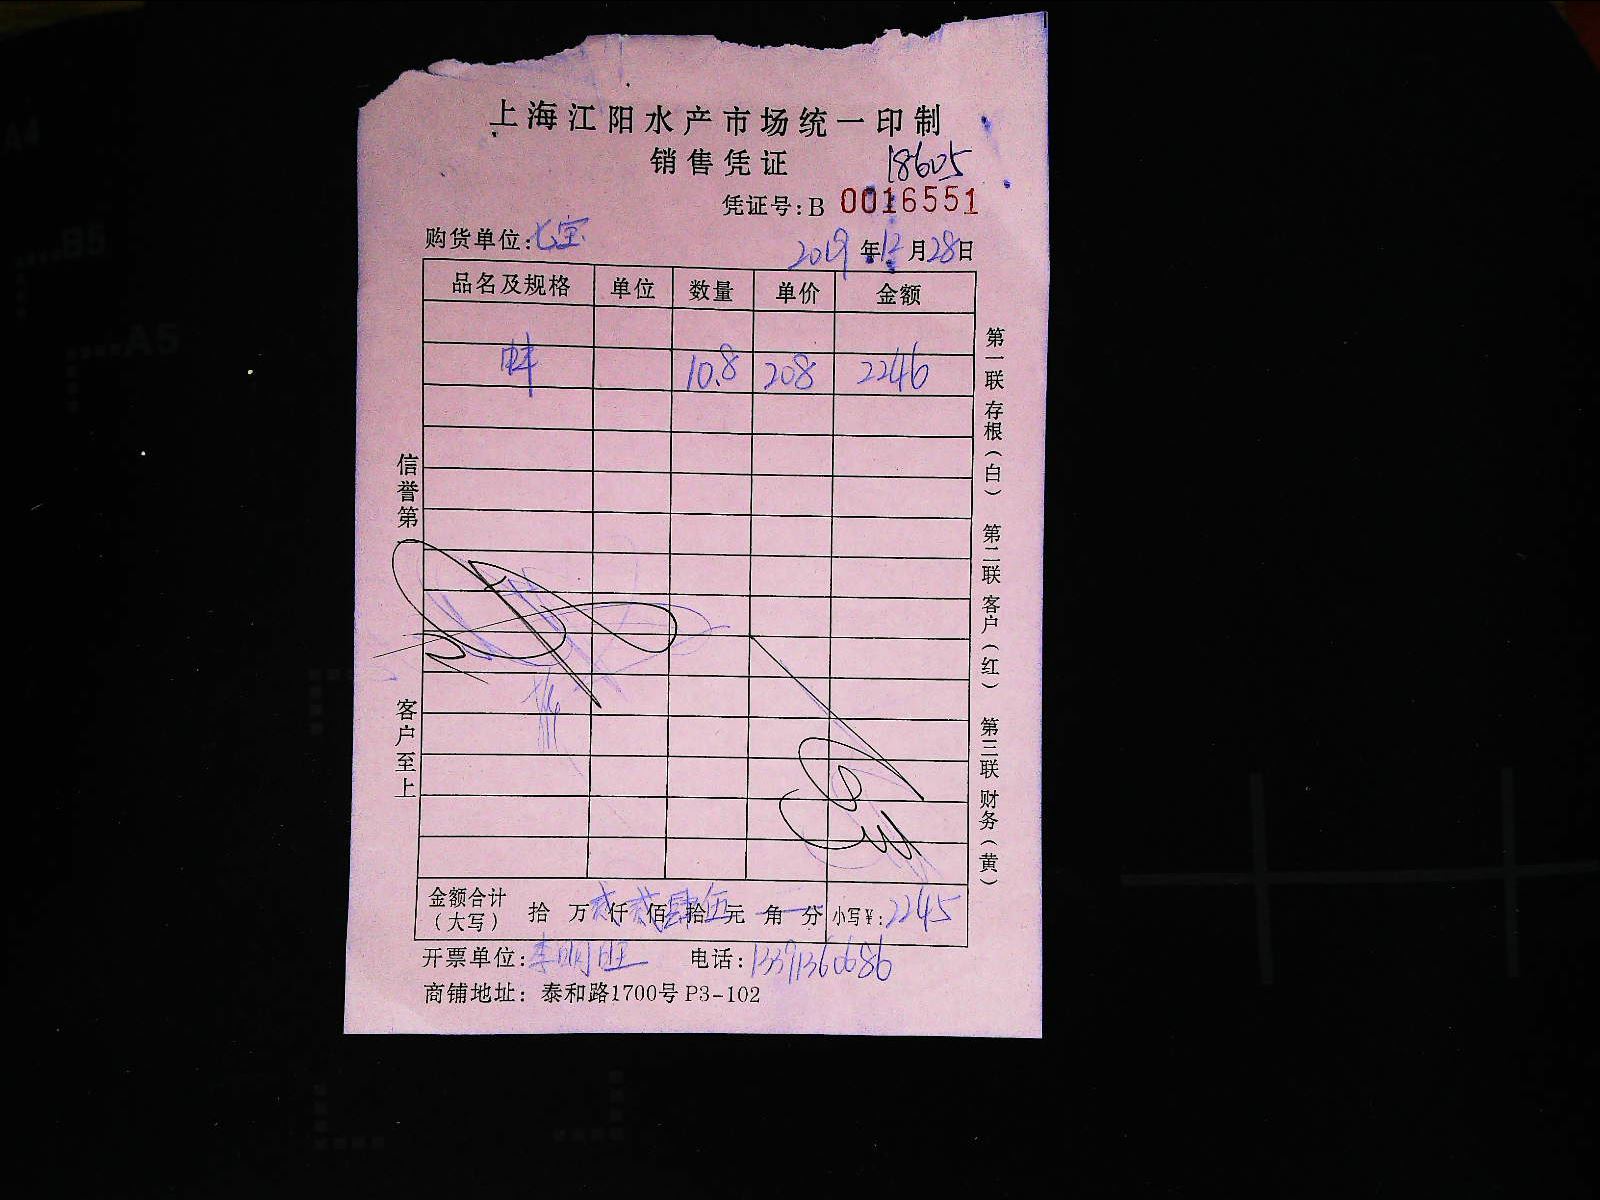 上海江阳水产市场统一印制
销售凭证
18605
凭证号:B 0016551
购货单位:七宝
2019年12月28日
品名及规格 单位 数量 单价 金额
10.8 208 2246
信誉第一
客户至上
第一联 存根(白) 第二联 客户(红) 第三联 财务(黄)
金额合计(大写) 拾 万贰仟贰佰肆拾伍元 角 分 小写¥:2245
开票单位:李明旺 电话:13391360686
商铺地址: 泰和路1700号 P3-102